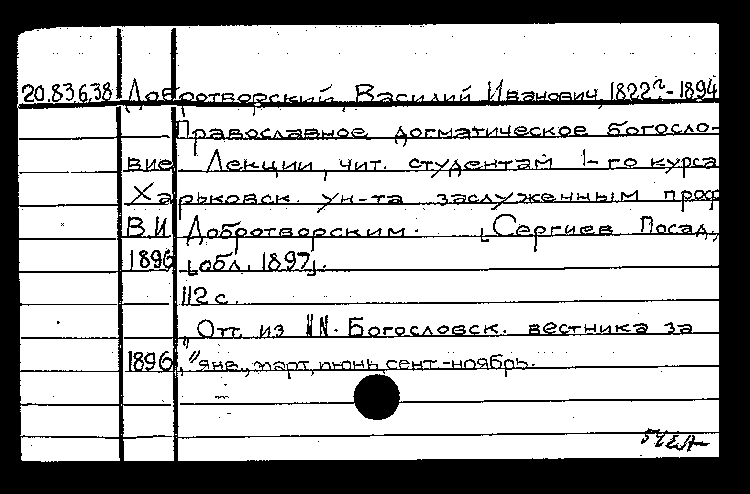 20.83.6.38 Добротворский, Василий Иванович, 1822?-1894
Православное догматическое богосло-
вие. Лекции, чит. студентам 1-го курса
Харьковск. ун-та заслуженным проф
В.И. Добротворским. [Сергиев Посад,
1896 [обл. 1897].
112 с.
Отт. из NN. Богословск. вестника за
1896, янв., март, июнь, сент.-ноябрь.